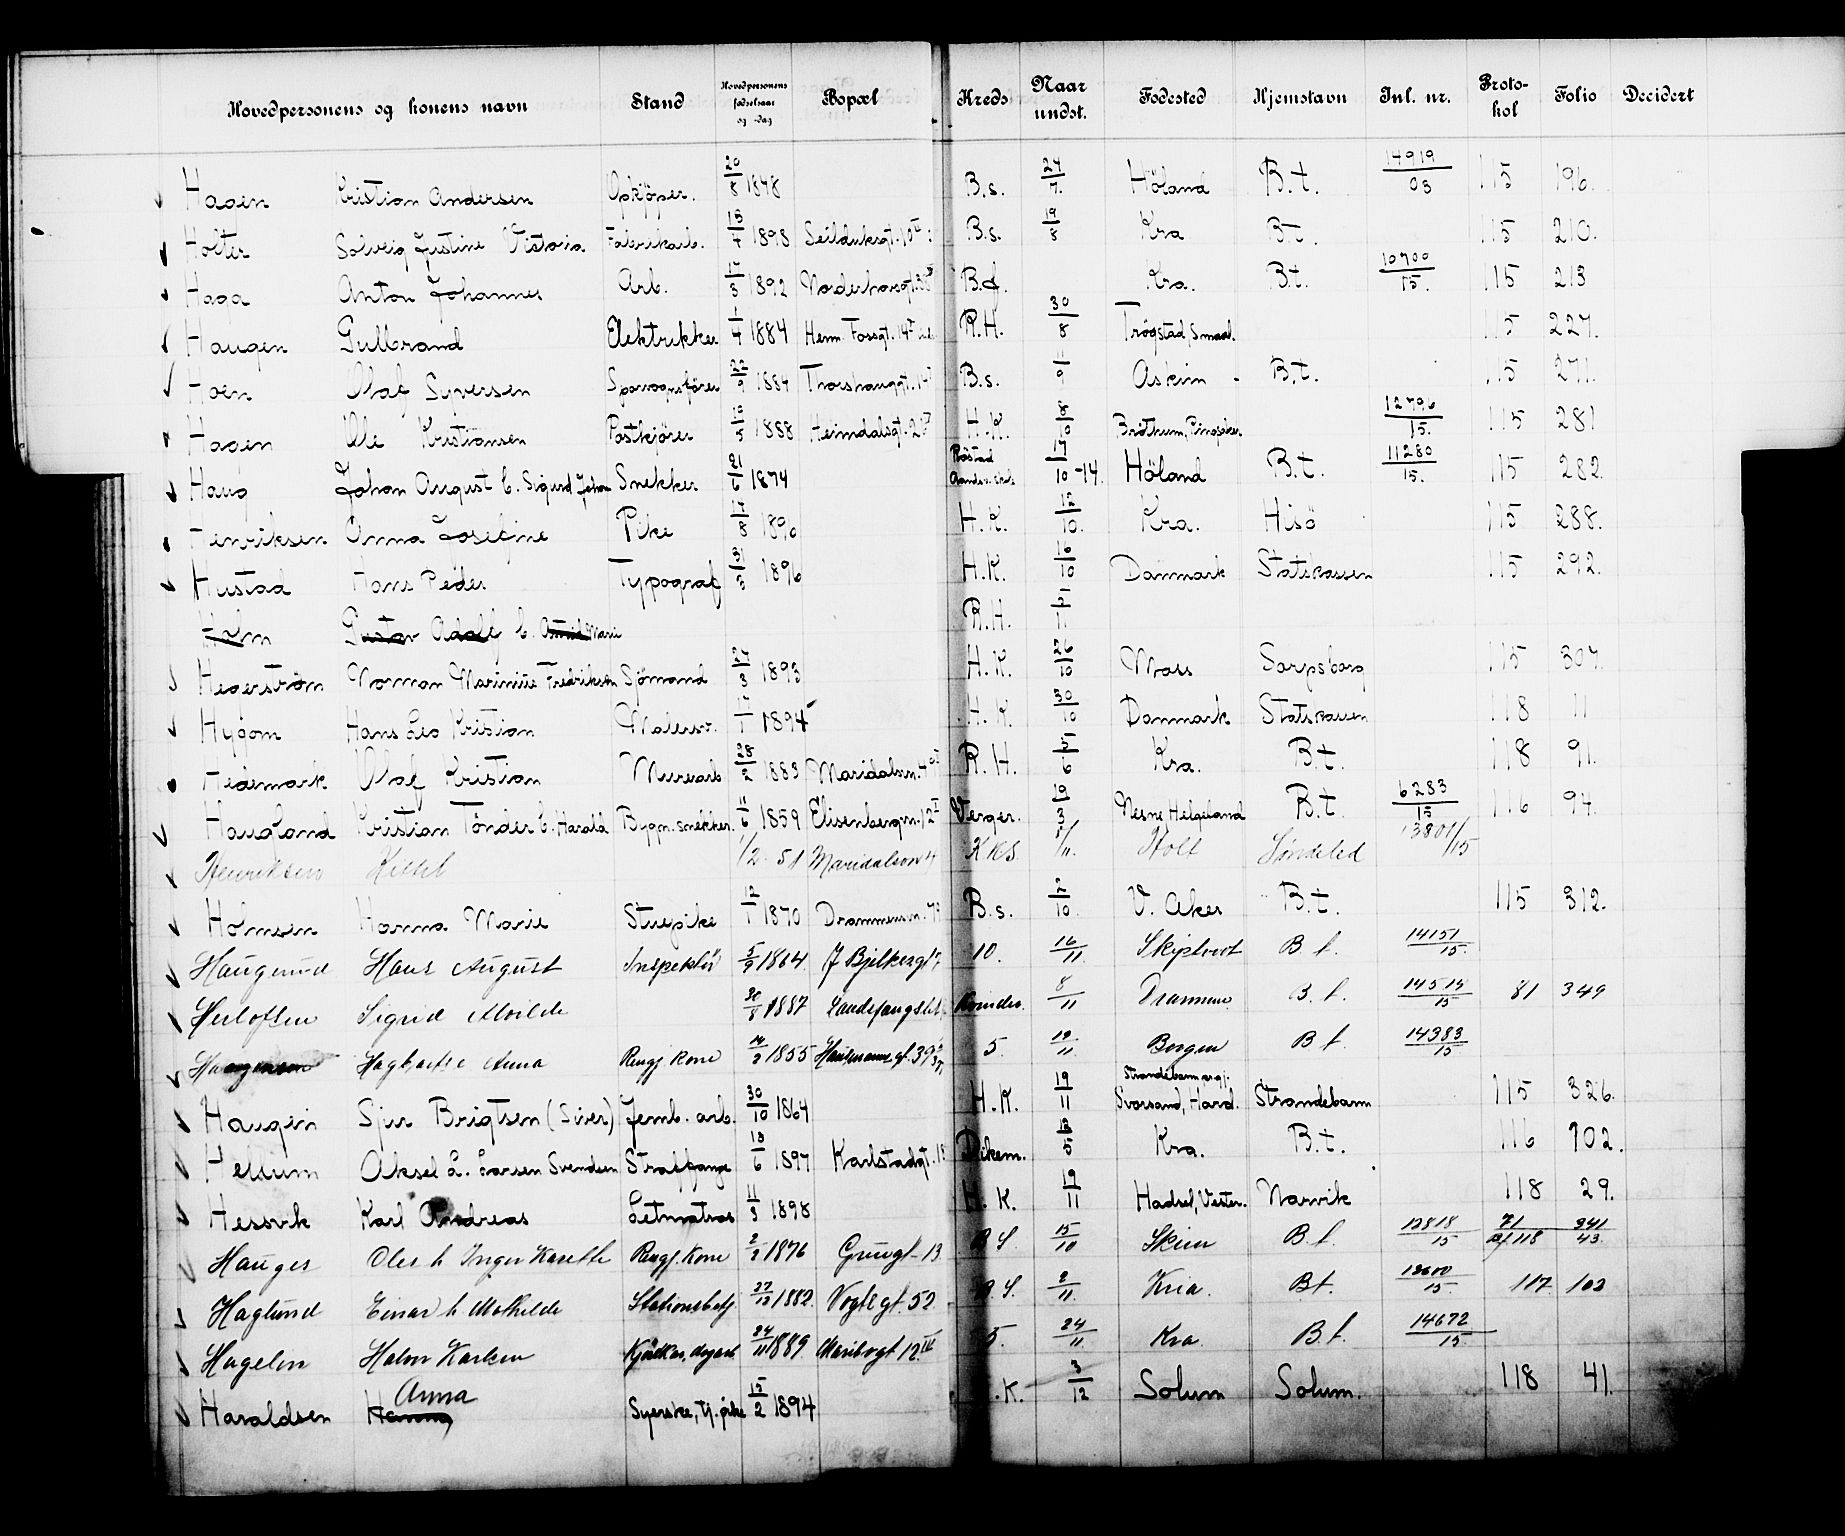 Hovedpersonens og konens navn Stand Hovedpersonens fødselsaar og -dag Bopæl Kreds Naar undst. Fødested Hjemstavn Inl. nr. Protokol Folio Decidert
Hagen Kristian Andersen Opkjöper. 20/8 1848 B.s. 24/7. Höland B.t. 14919/03 115 196.
Holter Solveig Justine Victoria Fabrikarb. 13/7 1898 Seilduksgt. 10 B.s. 19/8 Kra B.t. 115 210.
Haga Anton Johannes Arb. 1892 B.t. 10700/15. 115 213
Haugen Gulbrand Elektrikker 1/7 1884 Herm. Fossgt. 14 R.H. 30/8 Trögstad, Smaal. 115 227.
Hoen Olaf Syversen Sporvognsförer 22/9 1884 Thorshauggt. B.s. 11/9 Askim B.t. 115 271.
Hagen Ole Kristiansen Postkjörer 1888 Heimdalsgt. 2 H.K. 8/10 12796/15. 115 281
Haug Johan August C. Sigurd Johan Snekker 21/6 1874 17/10-14. Höland B.t. 11280/15. 115 282.
Henriksen Anna Josefine Pike 17/8 1896 H.K. 12/10. Kra. Hisö 115 288.
Hustad Hans Peder Typograf 31/3 1896 H.K. 16/10 Danmark Statskassen 115 292.
Holm Gustav Adolf C. Astrid Marie R.H.
Hegerström Norman Marinius Fredriksen Sjömand 27/3 1893 H.K. 26/10 Moss Sarpsborg 115 307.
Hygom Hans Leo Kristian Malersv. 17/1 1894 H.K. 30/10 Danmark Statskassen 118 11
Hedemark Olaf Kristian Murerarb 28/2 1883 Maridalsvn. R.H. 5/6 Kra. B.t. 118 91.
Haugland Kristian Tönder C. Harald Bygn. snekker. 11/6 1859 Elisenbergvn. 12 I Verger. 19/3 Nesne Helgeland B.t. 6283/15 116 94.
Henriksen Kittel 1/2 51 Maridalsvn 4 5/11. Holt Söndeled 13801/15
Holmsen Hanna Marie Stuepike 12/1 1870 Drammensvn. B.s. 2/10. V. Aker B.t. 115 312.
Haugerud Hans August Inspektör 5/9 1864. 10. 16/11 Skiptvedt B.t. 14151/15.
Herlofsen Sigrid Alvilde 30/8 1887 Landsfangslet Kvinder. 8/11 Drammen B.t. 81 349
Hagbartte Anna Rengj kone 1855 Hausmannsgt. 39 5. 19/11 Bergen B.t. 14383/15
Haugen Sjur Brigtsen (Siver) Jernb. arb. 30/10 1864 H.K. 19/11 Strandebarm prgj. Svarsand, Hard. Strandebarm 115 326.
Hellum Aksel L. Larsen Svendsen Straffange 13/6 1897 Karlstadgt. Dikem. 13/5 Kra. B.t. 116 102.
Hessvik Karl Andreas Letmatros 11/3 1898 H.K. 19/11 Hadsel, Vester. Narvik 118 29.
Hauger Oles h Inger Karethe Rengj. Kone 2/2 1876 13 B S. 15/10 Skien B.t. 12818/15 71 118 341 43.
Haglund Einar h Mathilde Stationsbetj. 22/12 1882. Vogtsgt. 52 S. 2/11. Kria. Bt. 12600/15. 117 102
Hagelin 24/11 1889. Maribogt 12 IV 5. 24/11 Kra B.t. 14672/15.
Haraldsen Anna Syerske, tj. pike 15/2 1894 .K. 3/12 Solum Solum. 118 41.